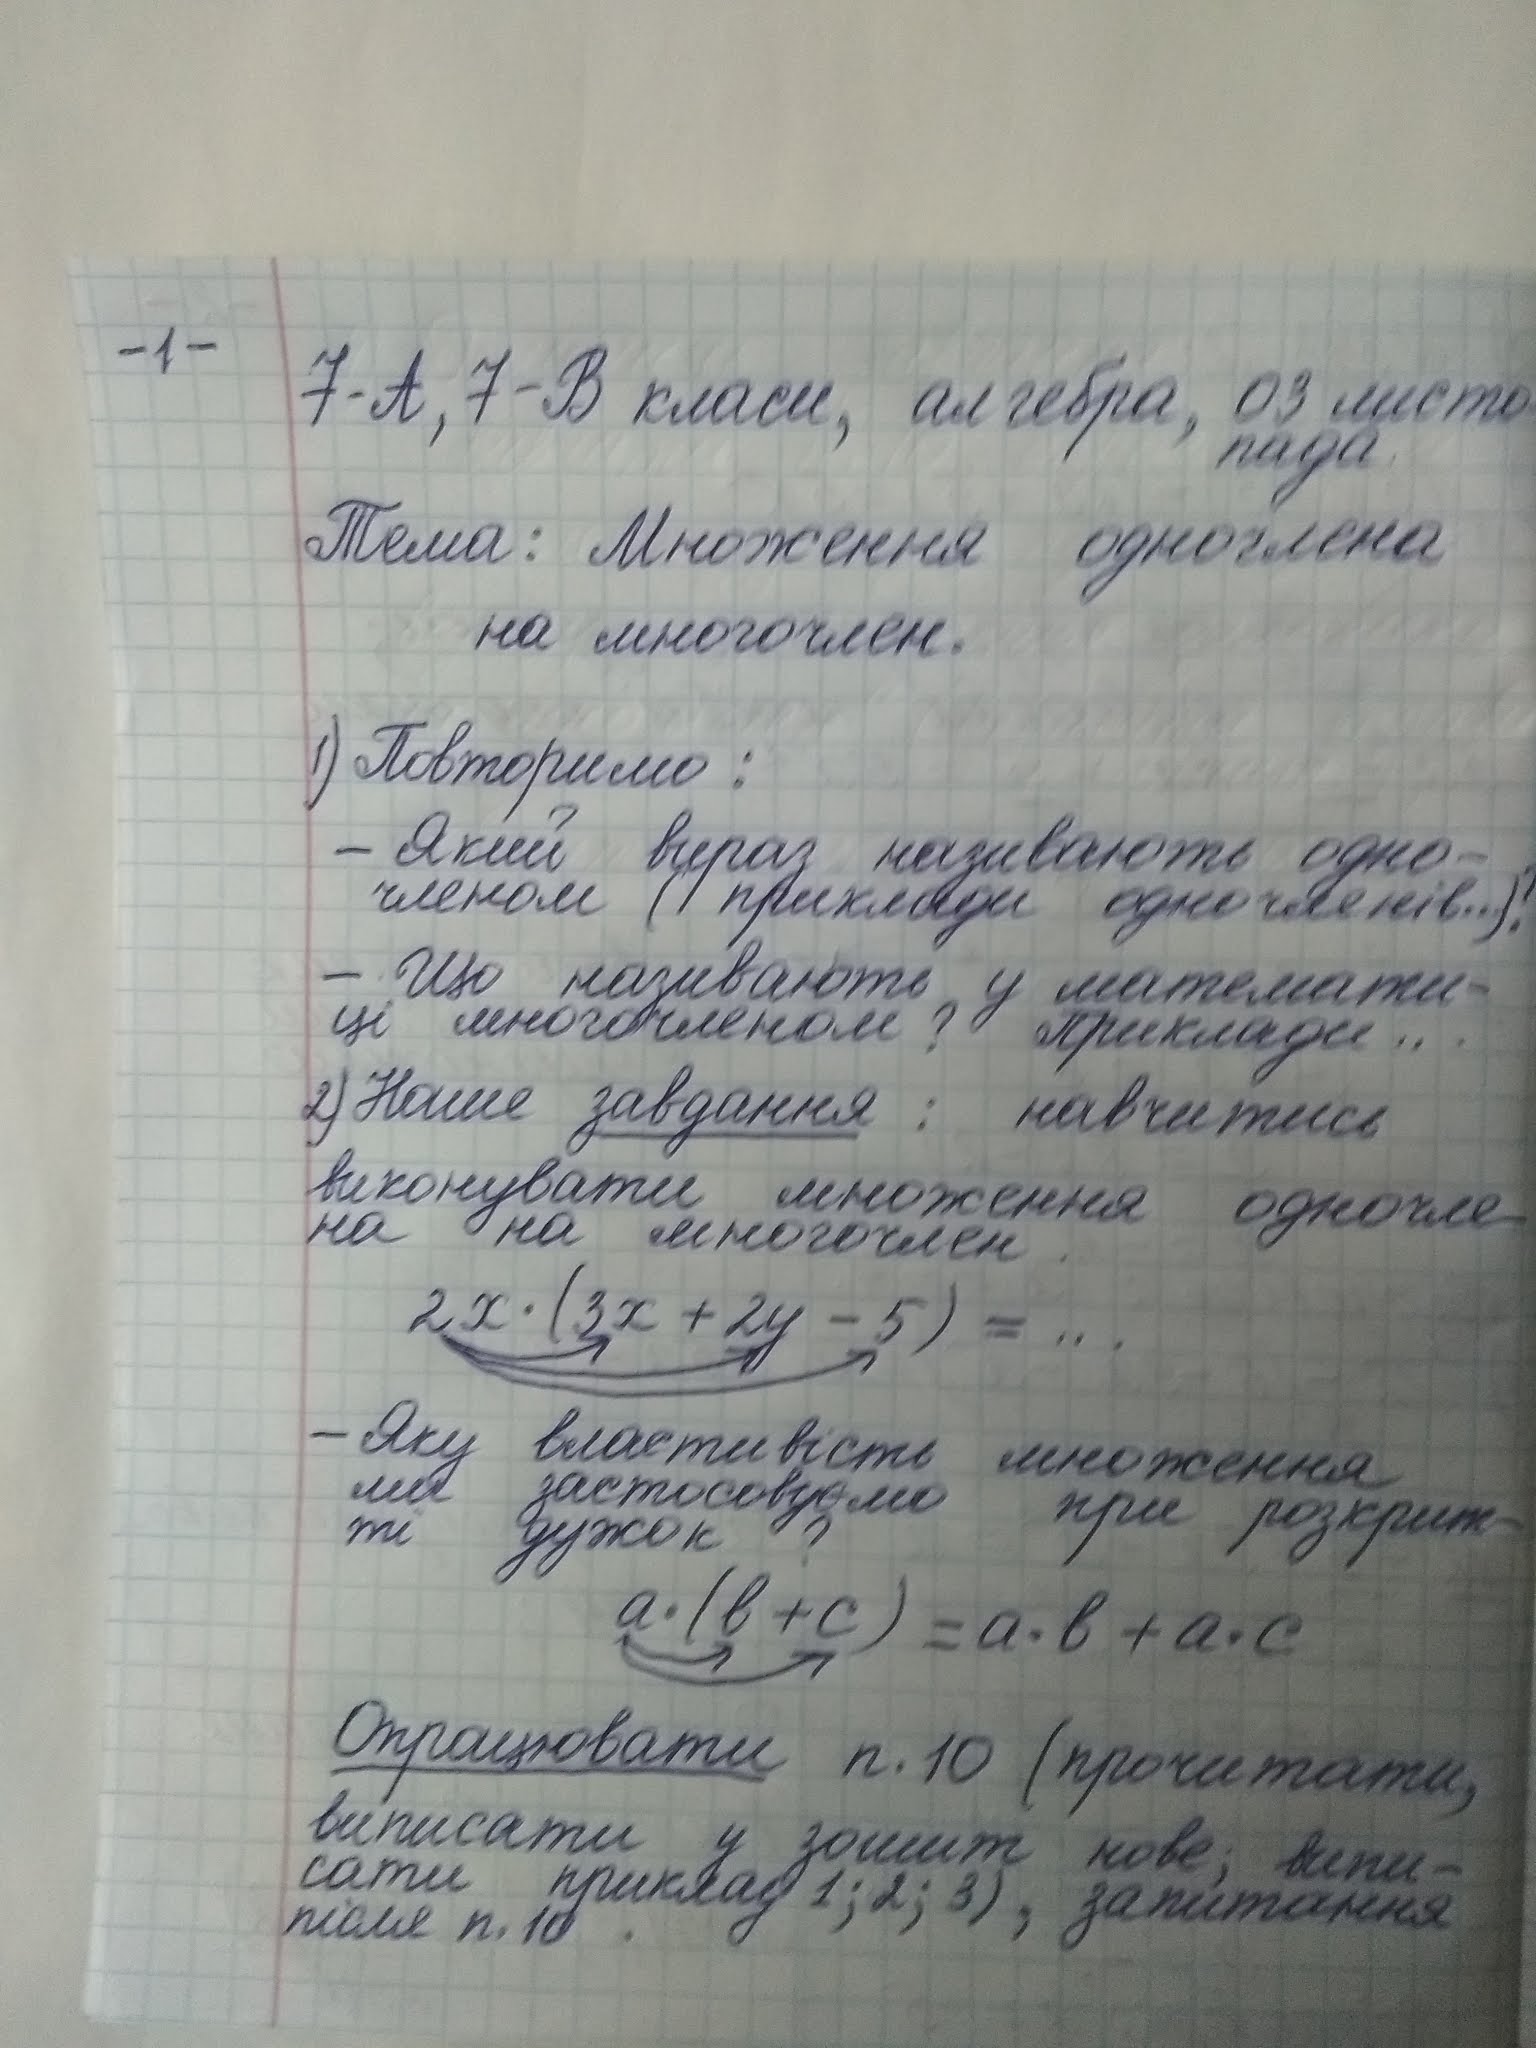 -1-
7-А, 7-В класи, алгебра, 03 листо
пада.
Тема: Множення одночлена
на многочлен.
1) Повторимо:
- Який вираз називають одно-
членом (приклади одночленів...)?
- Що називають у математи-
ці многочленом? Приклади...
2) Наше завдання: навчитись
виконувати множення одночле-
на на многочлен.
2x·(3x + 2y - 5) = ...
- Яку властивість множення
ми застосовуємо при розкрит-
ті дужок?
a·(b + c) = a·b + a·c
Опрацювати п.10 (прочитати,
виписати у зошит нове; випи-
сати приклад 1; 2; 3), запитання
після п.10.